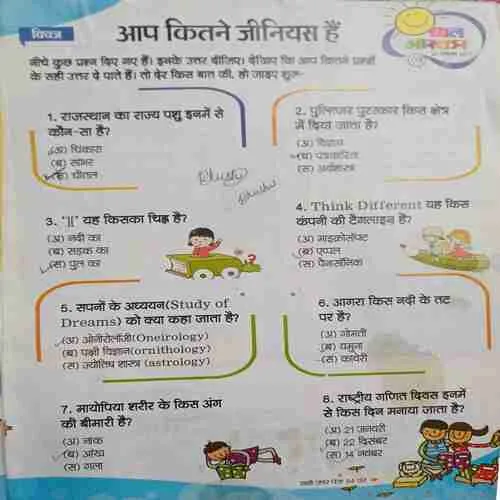 क्विज
आप कितने जीनियस हैं
बाल
भास्कर
नीचे कुछ प्रश्न दिए गए हैं। इनके उत्तर दीजिए। देखिए कि आप कितने प्रश्नों
के सही उत्तर दे पाते हैं। तो देर किस बात की, हो जाइए शुरू-
1. राजस्थान का राज्य पशु इनमें से
कौन-सा है?
(अ) चिंकारा
(ब) सांभर
(स) चीतल
2. पुलित्जर पुरस्कार किस क्षेत्र
में दिया जाता है?
(अ) विज्ञान
(ब) पत्रकारिता
(स) अर्थशास्त्र
3. "][" यह किसका चिह्न है?
(अ) नदी का
(ब) सड़क का
(स) पुल का
4. Think Different यह किस
कंपनी की टैगलाइन है?
(अ) माइक्रोसॉफ्ट
(ब) एप्पल
(स) पैनासोनिक
5. सपनों के अध्ययन(Study of
Dreams) को क्या कहा जाता है?
(अ) ओनीरोलॉजी(Oneirology)
(ब) पक्षी विज्ञान(ornithology)
(स) ज्योतिष शास्त्र (astrology)
6. आगरा किस नदी के तट
पर है?
(अ) गोमती
(ब) यमुना
(स) कावेरी
7. मायोपिया शरीर के किस अंग
की बीमारी है?
(अ) नाक
(ब) आंख
(स) गला
8. राष्ट्रीय गणित दिवस इनमें
से किस दिन मनाया जाता है?
(अ) 21 जनवरी
(ब) 22 दिसंबर
(स) 14 नवंबर